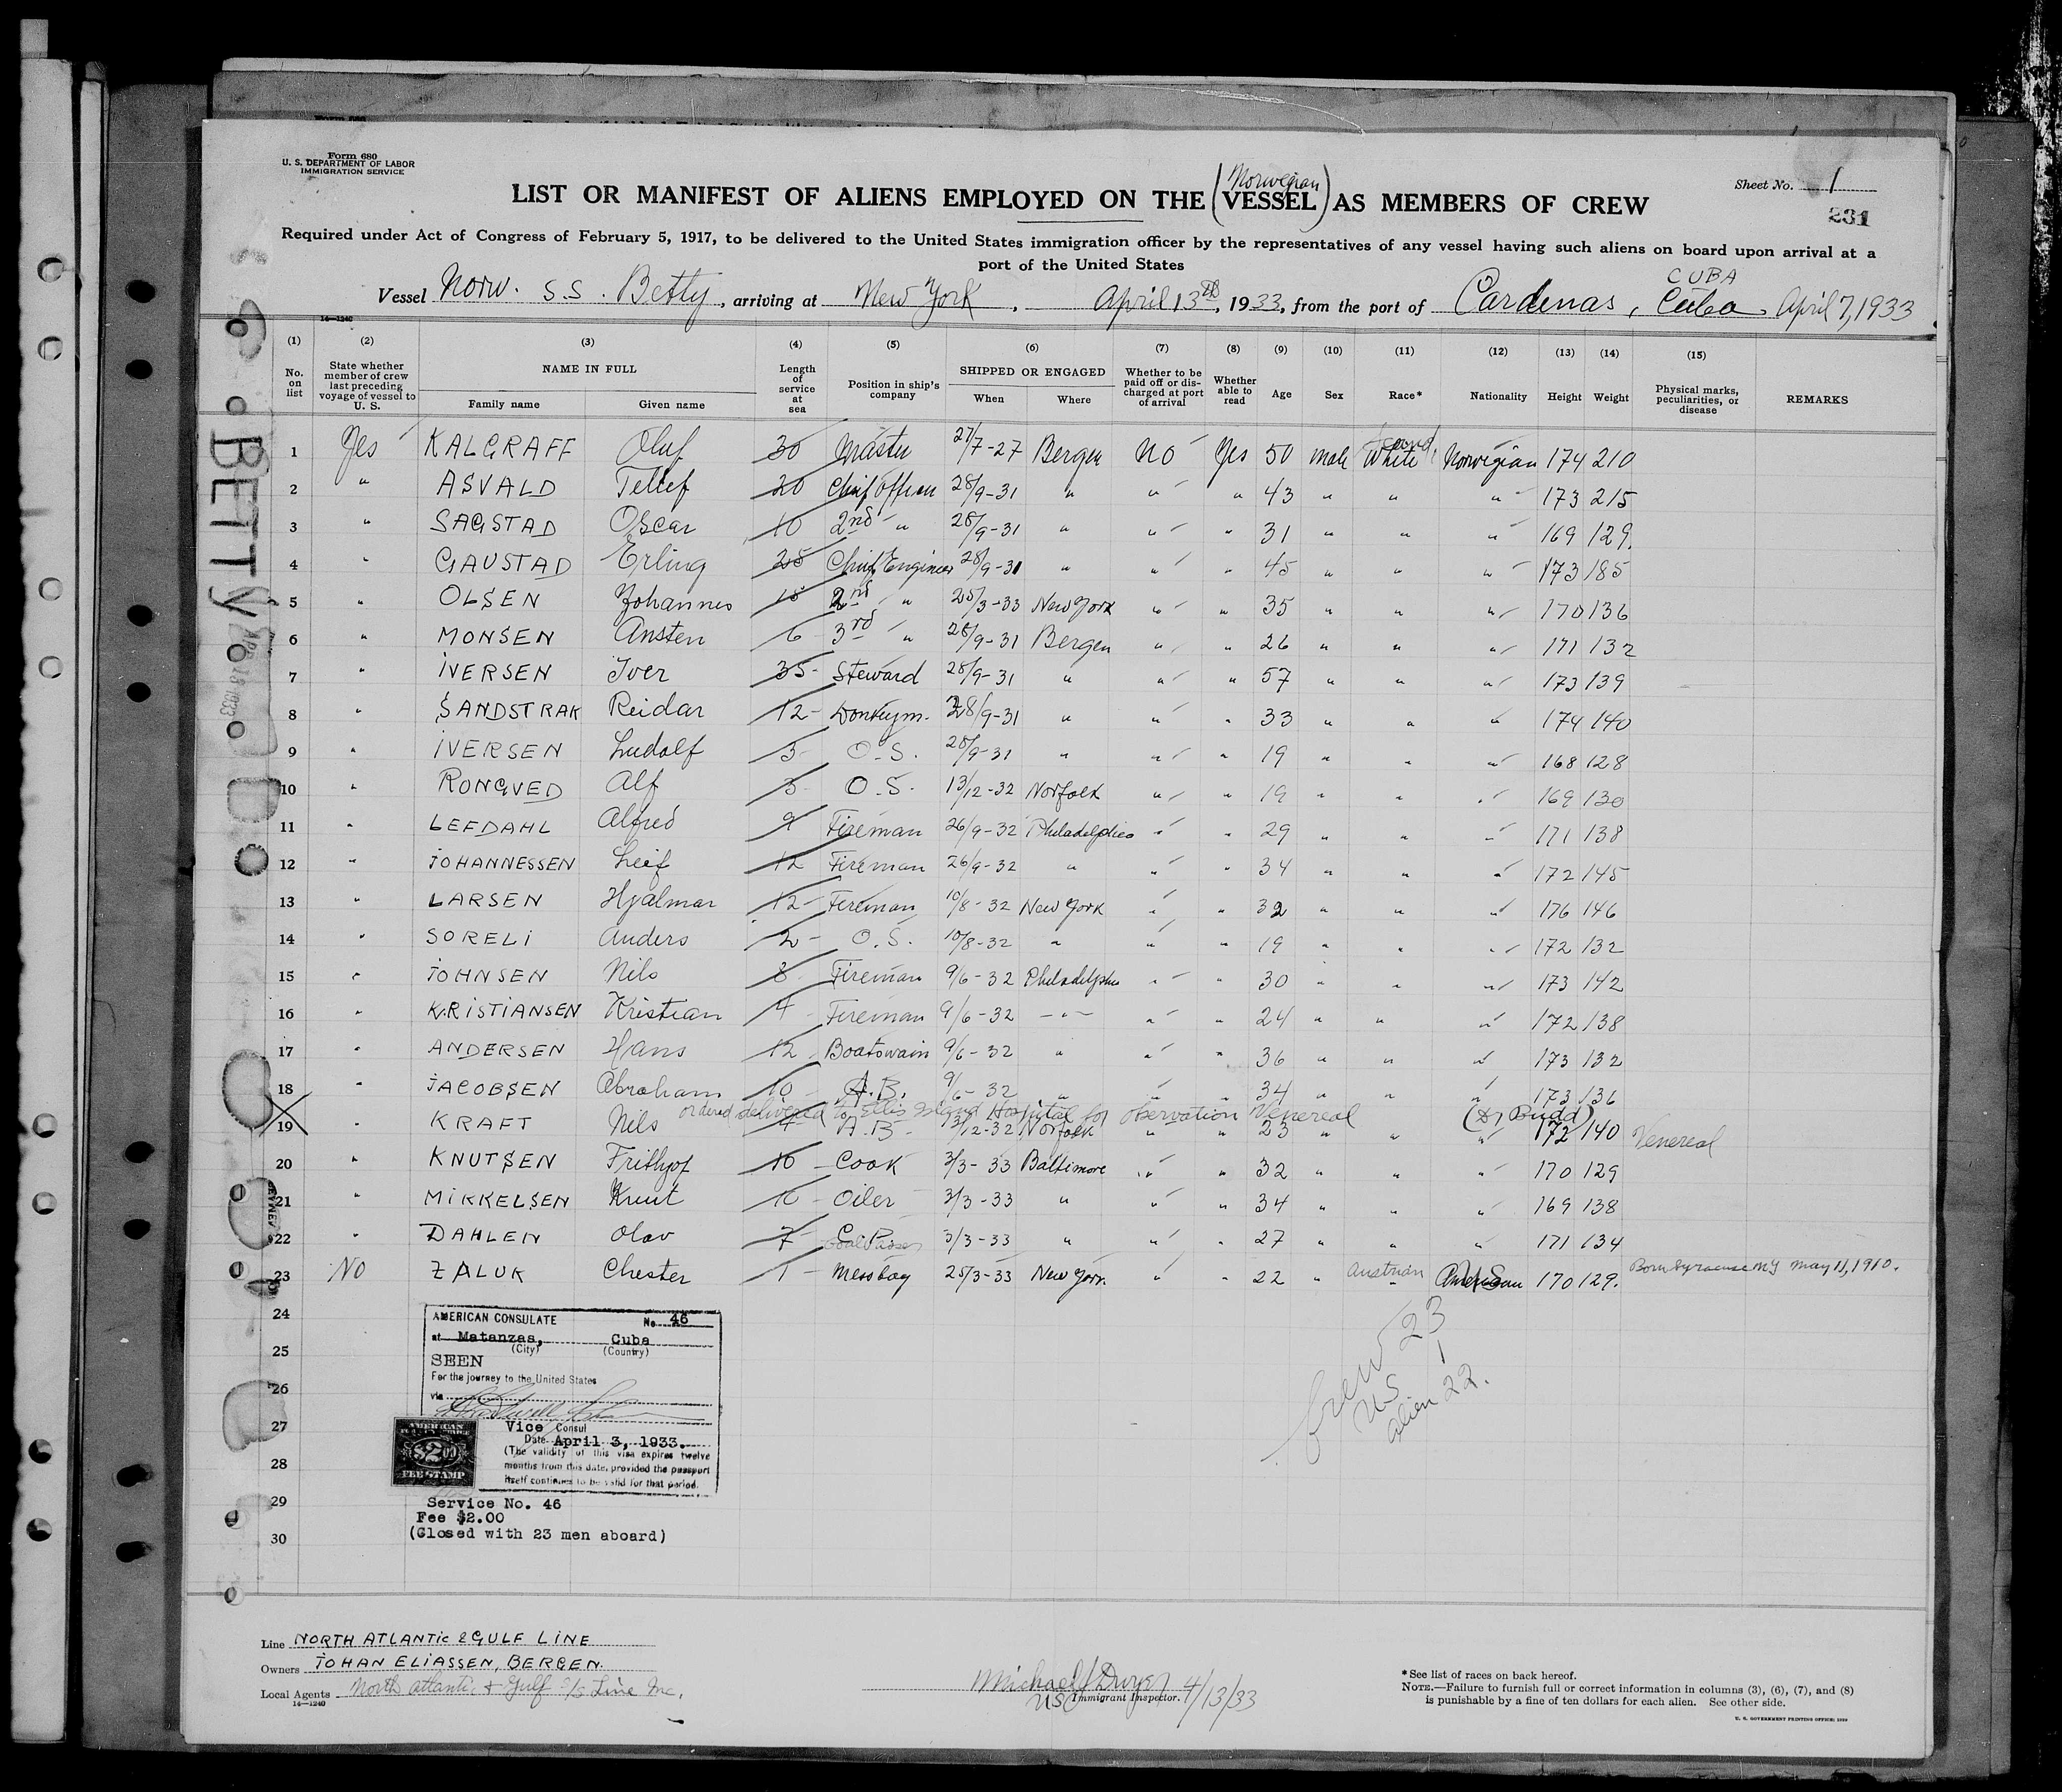 Form 680
U. S. DEPARTMENT OF LABOR
IMMIGRATION SERVICE
Sheet No. 1
231
Norwegian
LIST OR MANIFEST OF ALIENS EMPLOYED ON THE (VESSEL) AS MEMBERS OF CREW
Required under Act of Congress of February 5, 1917, to be delivered to the United States immigration officer by the representatives of any vessel having such aliens on board upon arrival at a
port of the United States
CUBA
Vessel Norw. S.S. Betty, arriving at New York, April 13th, 1933, from the port of Cardenas, Cuba. April 7, 1933
14—1240
(1) (2) (3) (4) (5) (6) (7) (8) (9) (10) (11) (12) (13) (14) (15)
No. on list State whether member of crew last preceding voyage of vessel to U. S. NAME IN FULL Family name Given name Length of service at sea Position in ship's company SHIPPED OR ENGAGED When Where Whether to be paid off or discharged at port of arrival Whether able to read Age Sex Race* Nationality Height Weight Physical marks, peculiarities, or disease REMARKS
1 Yes KALGRAFF Oluf 30 Master 27/7-27 Bergen No Yes 50 male Scand. White Norwegian 174 210
2 " ASVALD Tellef 20 Chief Officer 28/9-31 " " " 43 " " " 173 215
3 " SAGSTAD Oscar 10 2nd " 28/9-31 " " " 31 " " " 169 129.
4 " GAUSTAD Erling 25 Chief Engineer 28/9-31 " " " 45 " " " 173 185
5 " OLSEN Johannes 15 2nd " 25/3-33 New York " " 35 " " " 170 136
6 " MONSEN Ansten 6 3rd " 28/9-31 Bergen " " 26 " " " 171 132
7 " IVERSEN Iver 35- Steward 28/9-31 " " " 57 " " " 173 139
8 " SANDSTRAK Reidar 12- Donkeym. 28/9-31 " " " 33 " " " 174 140
9 " IVERSEN Ludolf 3- O.S. 28/9-31 " " " 19 " " " 168 128
10 " RONGVED Alf 3- O.S. 13/12-32 Norfolk " " 19 " " " 169 130
11 " LEFDAHL Alfred 9 Fireman 26/9-32 Philadelphia " " 29 " " " 171 138
12 " JOHANNESSEN Leif 12 Fireman 26/9-32 " " " 34 " " " 172 145
13 " LARSEN Hjalmar 12- Fireman 10/8-32 New York " " 32 " " " 176 146
14 " SORELI Anders 2- O.S. 10/8-32 " " " 19 " " " 172 132
15 " JOHNSEN Nils 8 Fireman 9/6-32 Philadelphia " " 30 " " " 173 142
16 " KRISTIANSEN Kristian 4 Fireman 9/6-32 -"- " " 24 " " " 172 138
17 " ANDERSEN Hans 12 Boatswain 9/6-32 " " " 36 " " " 173 132
18 " JACOBSEN Abraham 10 A.B. 9/6-32 " " " 34 " " " 173 136
ordered delivered to Ellis Island Hospital for observation Venereal (Dr Budd)
19 KRAFT Nils 4 A.B. 13/12-32 Norfolk " " 23 " " " 172 140 Venereal
20 " KNUTSEN Frithjof 10 - Cook 3/3-33 Baltimore " " 32 " " " 170 129
21 " MIKKELSEN Knut 10 - Oiler 3/3-33 " " " 34 " " " 169 138
22 " DAHLEN Olav 7 - C.P. Coal Passer 3/3-33 " " " 27 " " " 171 134
23 No ZALUK Chester 1 - Messboy 25/3-33 New York. " " 22 " Austrian American US 170 129. Born Syracuse NY May 11, 1910.
24
25
26
27
28
29
30
AMERICAN CONSULATE No. 46
at Matanzas, Cuba
(City) (Country)
SEEN
For the journey to the United States
via
Vice Consul
Date April 3, 1933.
(The validity of this visa expires twelve
months from this date, provided the passport
itself continues to be valid for that period.
AMERICAN
$2.00
FEE STAMP
Service No. 46
Fee $2.00
(Closed with 23 men aboard)
Crew 23
US 1
alien 22.
Line NORTH ATLANTIC & GULF LINE
Owners JOHAN ELIASSEN, BERGEN.
Local Agents North Atlantic & Gulf S/S Line Inc.
14—1240
Michael J Dwyer 4/13/33
US Immigrant Inspector.
*See list of races on back hereof.
NOTE.—Failure to furnish full or correct information in columns (3), (6), (7), and (8)
is punishable by a fine of ten dollars for each alien. See other side.
BETTY
APR 13 1933